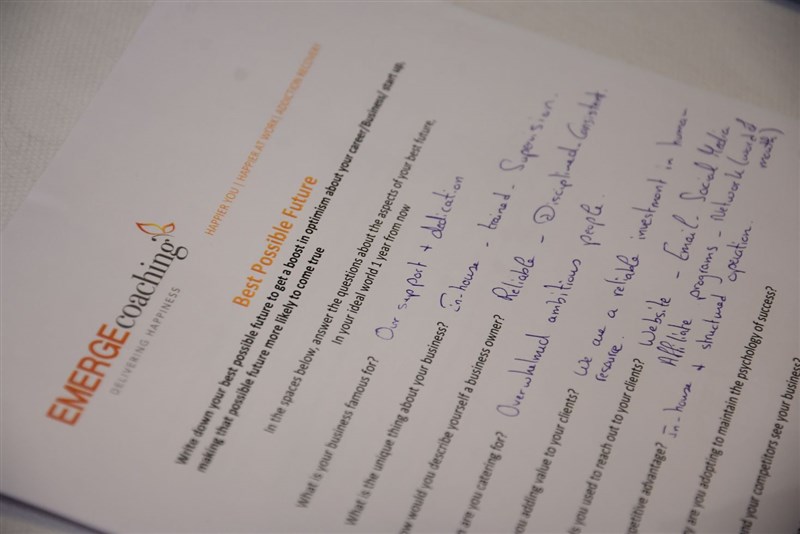 EMERGEcoaching
DELIVERING HAPPINESS
HAPPIER YOU | HAPPIER AT WORK | ADDICTION RECOVERY
Best Possible Future
Write down your best possible future to get a boost in optimism about your career/Business/ start up,
making that possible future more likely to come true
In the spaces below, answer the questions about the aspects of your best future.
In your ideal world 1 year from now
What is your business famous for? Our support + dedication
What is the unique thing about your business? in-house - trained - Supervision.
ow would you describe yourself a business owner? Reliable - Disciplined - Consistent.
are you catering for? Overwhelmed ambitious people.
you adding value to your clients? We are a reliable investment in human
resource.
you used to reach out to your clients? Website - Email - Social Media
Affiliate programs - Network (word of
mouth)
petitive advantage? in-house + structured operation.
are you adopting to maintain the psychology of success?
and your competitors see your business?